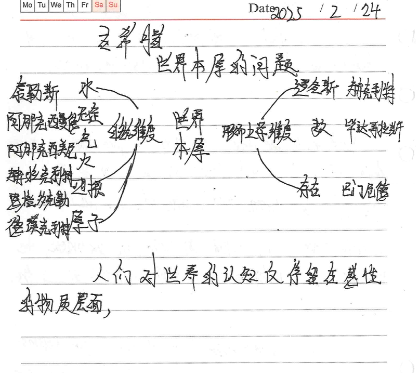 Mo Tu We Th Fr Sa Su
Date 2025 / 2 / 24
古希腊
世界本原的问题
泰勒斯 水
阿那克西曼德 无定
阿那克西美尼 气
赫拉克利特 火
恩培多克勒 四根
德谟克利特 原子
维度
世界
本原
形而上学维度
逻各斯 赫拉克利特
数 毕达哥拉斯
存在 巴门尼德
人们对世界的认知仅停留在感性
的物质层面,